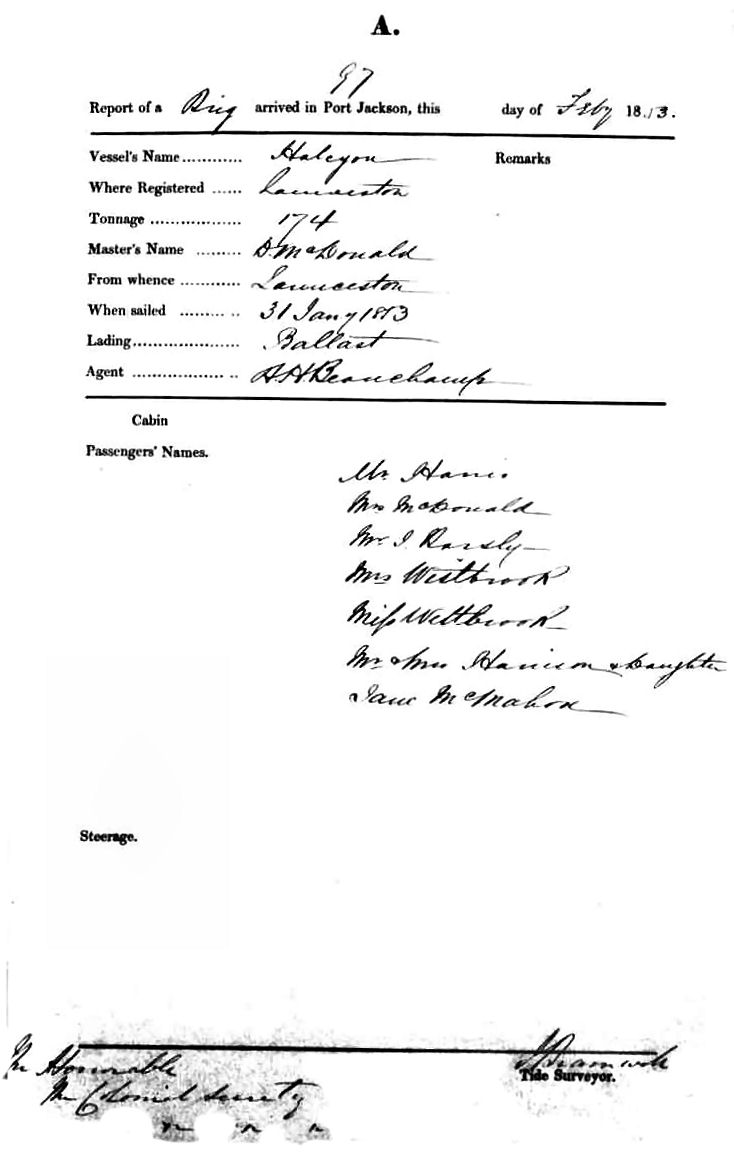 A.
97
Report of a Brig arrived in Port Jackson, this day of Feby 1853.
Vessel's Name............ Halcyon Remarks
Where Registered ...... Launceston
Tonnage .................. 174
Master's Name ......... D. McDonald
From whence ............ Launceston
When sailed ......... .. 31 Jany 1853
Lading..................... Ballast
Agent .................. .. A H Beauchamp
Cabin
Passengers' Names.
Mr. Harris
Mrs McDonald
Mr. J.
Mrs Westbrook
Miss Westbrook
Mr & Mrs Harrison & Daughter
Jane McMahon
Steerage.
The Honorable
The Colonial Secretary
Tide Surveyor.